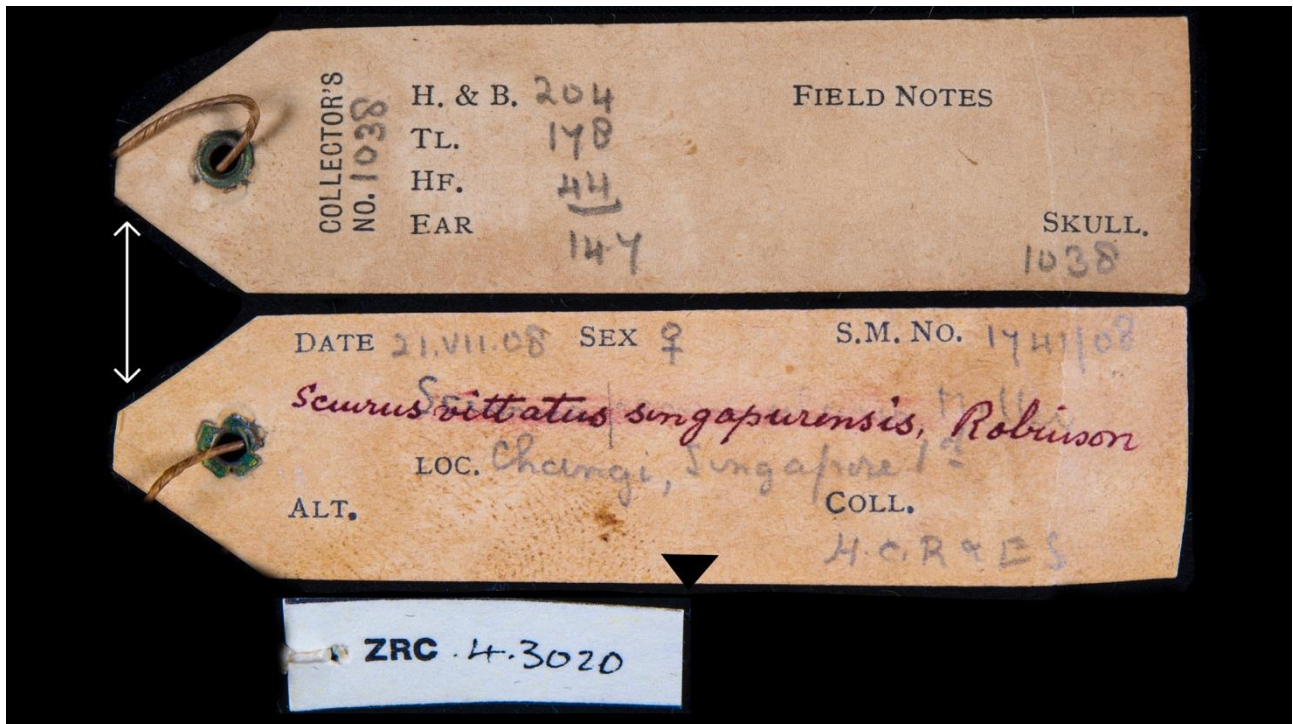 COLLECTOR'S
NO. 1038
H. & B. 204
TL. 178
HF. 44
EAR
147
FIELD NOTES
SKULL.
1038
DATE 21.VII.08 SEX ♀ S.M. NO. 1741/08
Sciurus vittatus singapurensis, Robinson
LOC. Changi, Singapore Id
ALT. COLL.
H.C.R & E S
ZRC .4.3020